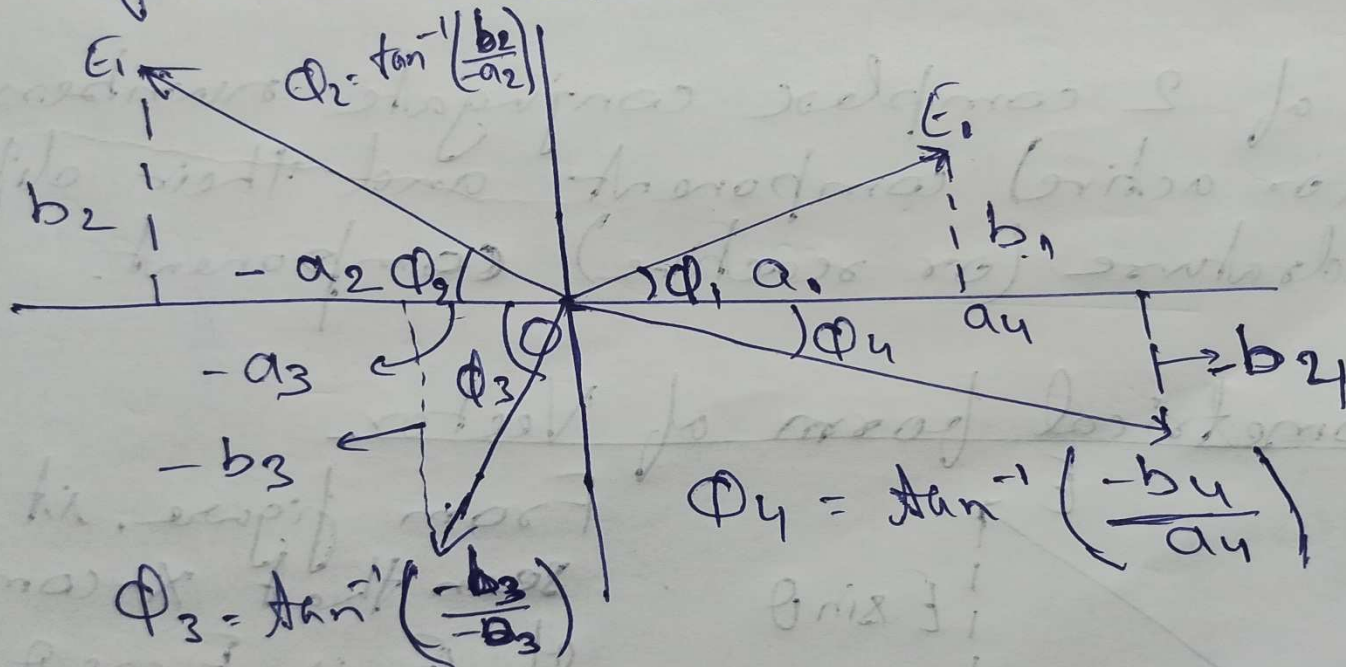 E₁
Φ₂ = tan⁻¹(b₂/-a₂)
E₁
b₂
b₁
- a₂ Φ₂
Φ₁ a₁
a₄
- a₃
Φ₃
O
Φ₄
- b₄
- b₃
Φ₄ = tan⁻¹(-b₄/a₄)
Φ₃ = tan⁻¹(-b₃/-a₃)